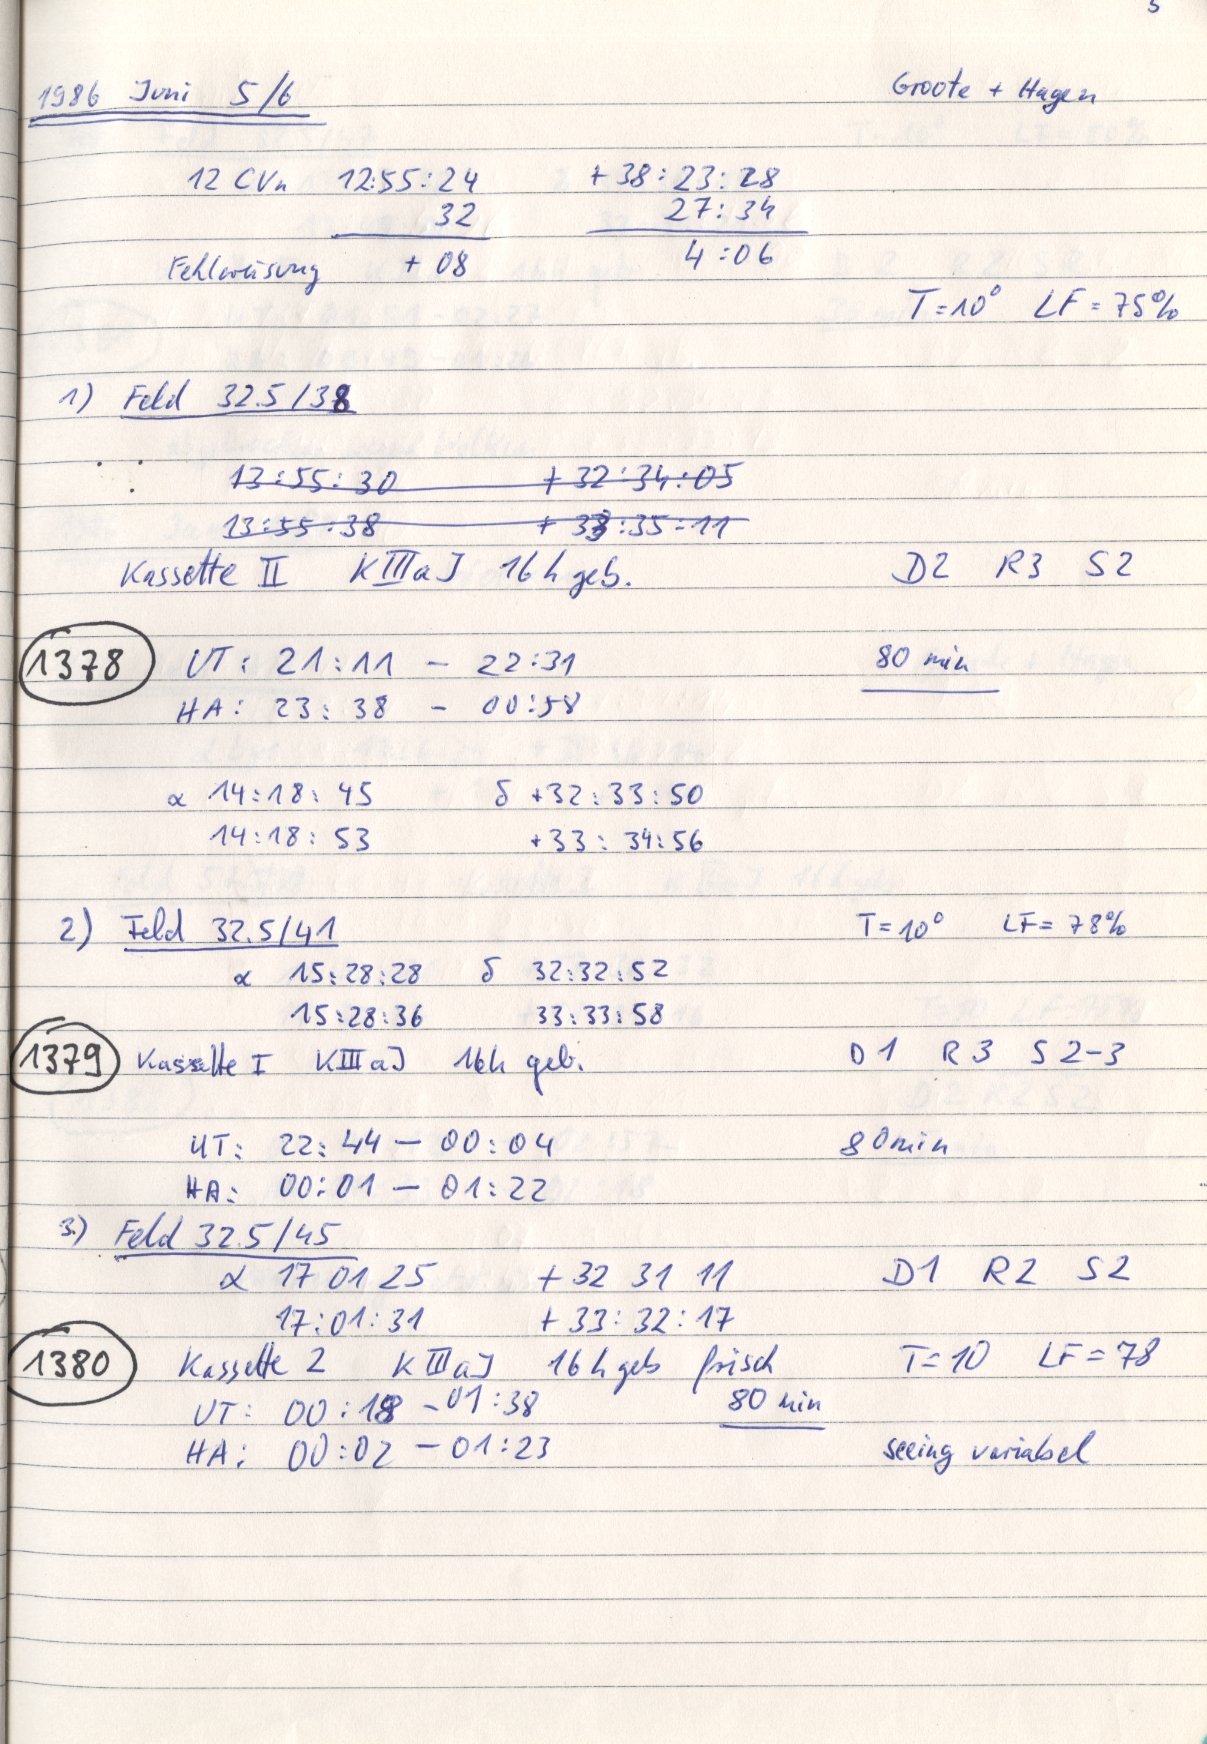 5
1986 Juni 5/6 Groote + Hagen
12 CVn 12:55:24 +38:23:28
32 27:34
Fehlweisung +08 4:06
T=10° LF=75%
1) Feld 32.5/38
13:55:30 +32:34:05
13:55:38 +33:35:11
Kassette II KIIIaJ 16h geb. D2 R3 S2
1378 UT: 21:11 – 22:31 80 min
HA: 23:38 – 00:58
α 14:18:45 δ +32:33:50
14:18:53 +33:34:56
2) Feld 32.5/41 T=10° LF=78%
α 15:28:28 δ 32:32:52
15:28:36 33:33:58
1379 Kassette I KIIIaJ 16h geb. D1 R3 S2-3
UT: 22:44 – 00:04 80min
HA: 00:01 – 01:22
3.) Feld 32.5/45
α 17 01 25 +32 31 11 D1 R2 S2
17:01:31 +33:32:17
1380 Kassette 2 KIIIaJ 16h geb frisch T=10 LF=78
UT: 00:18 – 01:38 80 min
HA: 00:02 – 01:23 seeing variabel